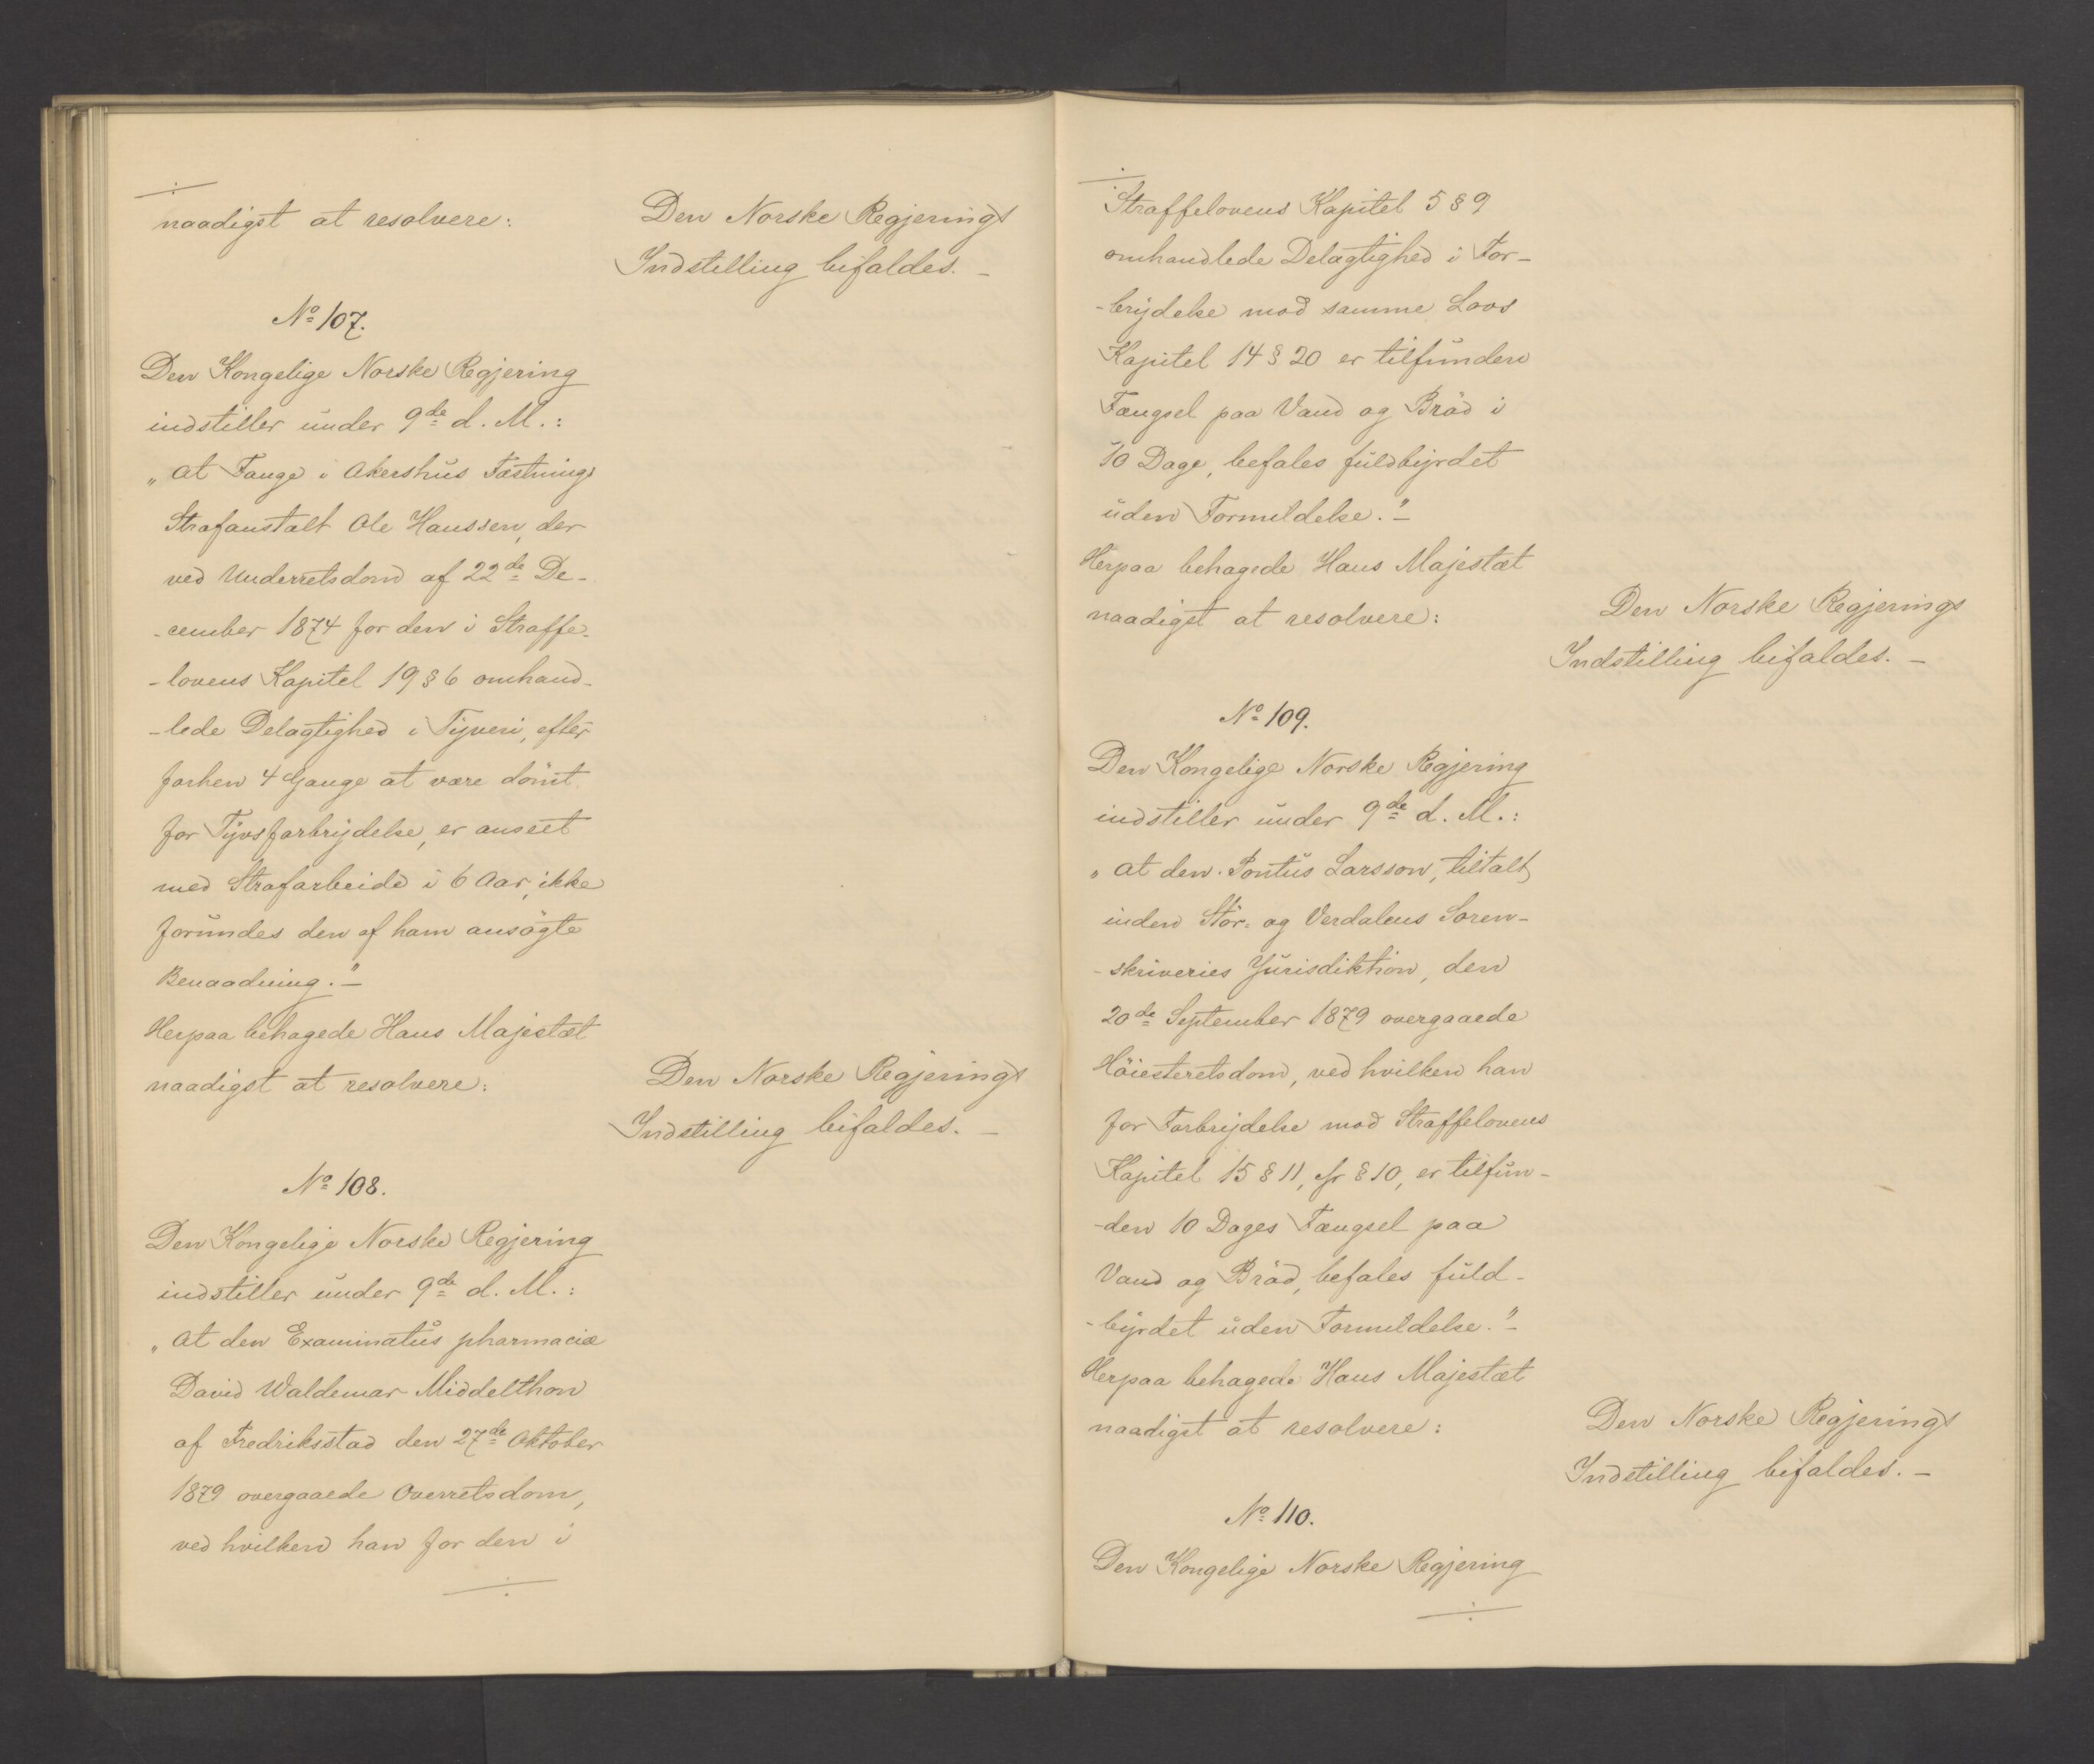 naadigst at resolvere:
Den Norske Regjerings
Indstilling bifaldes. –
No 107.
Den Kongelige Norske Regjering
indstiller under 9de d. M.:
„at Fange i Akershus Fæstnings
Strafanstalt Ole Hanssen, der
ved Underretsdom af 22de De-
-cember 1874 for den i Straffe-
-lovens Kapitel 19 § 6 omhand-
-lede Delagtighed i Tyveri, efter
forhen 4 Gange at være dömt
for Tyvsforbrydelse, er anseet
med Strafarbeide i 6 Aar, ikke
forundes den af ham ansögte
Benaadning." –
Herpaa behagede Hans Majestæt
naadigst at resolvere:
Den Norske Regjerings
Indstilling bifaldes. –
No 108.
Den Kongelige Norske Regjering
indstiller under 9de d. M.:
„at den Examinatus pharmaciæ
David Waldemar Middelthon
af Fredriksstad den 27de Oktober
1879 overgaaede Overretsdom,
ved hvilken han for den i
Straffelovens Kapitel 5 § 9
omhandlede Delagtighed i For-
-brydelse mod samme Lovs
Kapitel 14 § 20 er tilfunden
Fængsel paa Vand og Bröd i
10 Dage, befales fuldbyrdet
uden Formildelse." –
Herpaa behagede Hans Majestæt
naadigst at resolvere:
Den Norske Regjerings
Indstilling bifaldes. –
No 109.
Den Kongelige Norske Regjering
indstiller under 9de d. M.:
„at den Pontus Larsson, tiltalt
inden Stör- og Verdalens Soren-
-skriveries Jurisdiktion, den
20de September 1879 overgaaede
Höiesteretsdom, ved hvilken han
for Forbrydelse mod Straffelovens
Kapitel 15 § 11, cfr § 10, er tilfun-
-den 10 Dages Fængsel paa
Vand og Bröd, befales fuld-
-byrdet uden Formildelse." –
Herpaa behagede Hans Majestæt
naadigst at resolvere:
Den Norske Regjerings
Indstilling bifaldes. –
No 110.
Den Kongelige Norske Regjering